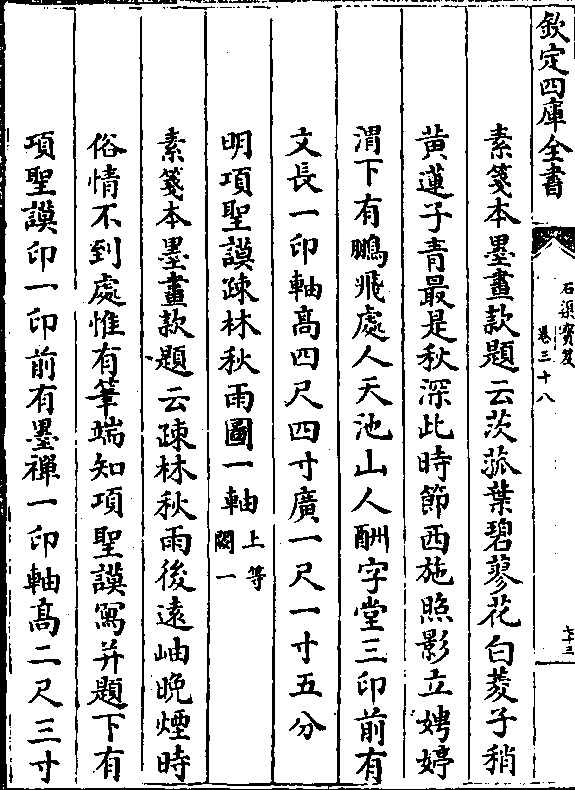 欽定四庫全書
石渠寳笈
卷三十八
素箋本墨畫款題云茨菰葉碧蓼花白菱子稍
黄蓮子青最是秋深此時節西施照影立娉婷
渭下有鵬飛處人天池山人酬字堂三印前有
文長一印軸髙四尺四寸廣一尺一寸五分
明項聖謨疎林秋雨圖一軸上等閣一
素箋本墨畫款題云疎林秋雨後遠岫晚煙時
俗情不到處惟有筆端知項聖謨寫并題下有
項聖謨印一印前有墨禪一印軸髙二尺三寸